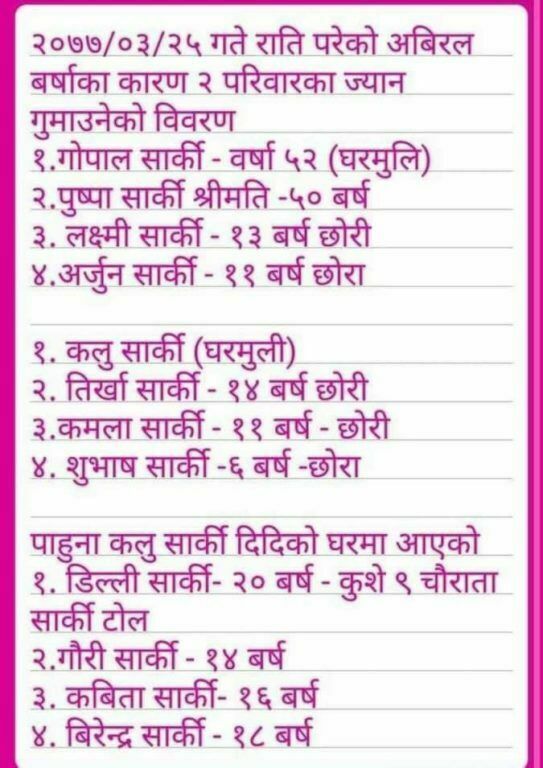 २०७७/०३/२५ गते राति परेको अबिरल
बर्षाका कारण २ परिवारका ज्यान
गुमाउनेको विवरण
१.गोपाल सार्की - वर्षा ५२ (घरमुलि)
२.पुष्पा सार्की श्रीमति -५० बर्ष
३. लक्ष्मी सार्की - १३ बर्ष छोरी
४.अर्जुन सार्की - ११ बर्ष छोरा
१. कलु सार्की (घरमुली)
२. तिर्खा सार्की - १४ बर्ष छोरी
३.कमला सार्की - ११ बर्ष - छोरी
४. शुभाष सार्की -६ बर्ष -छोरा
पाहुना कलु सार्की दिदिको घरमा आएको
१. डिल्ली सार्की- २० बर्ष - कुशे ९ चौराता
सार्की टोल
२.गौरी सार्की - १४ बर्ष
३. कबिता सार्की- १६ बर्ष
४. बिरेन्द्र सार्की - १८ बर्ष